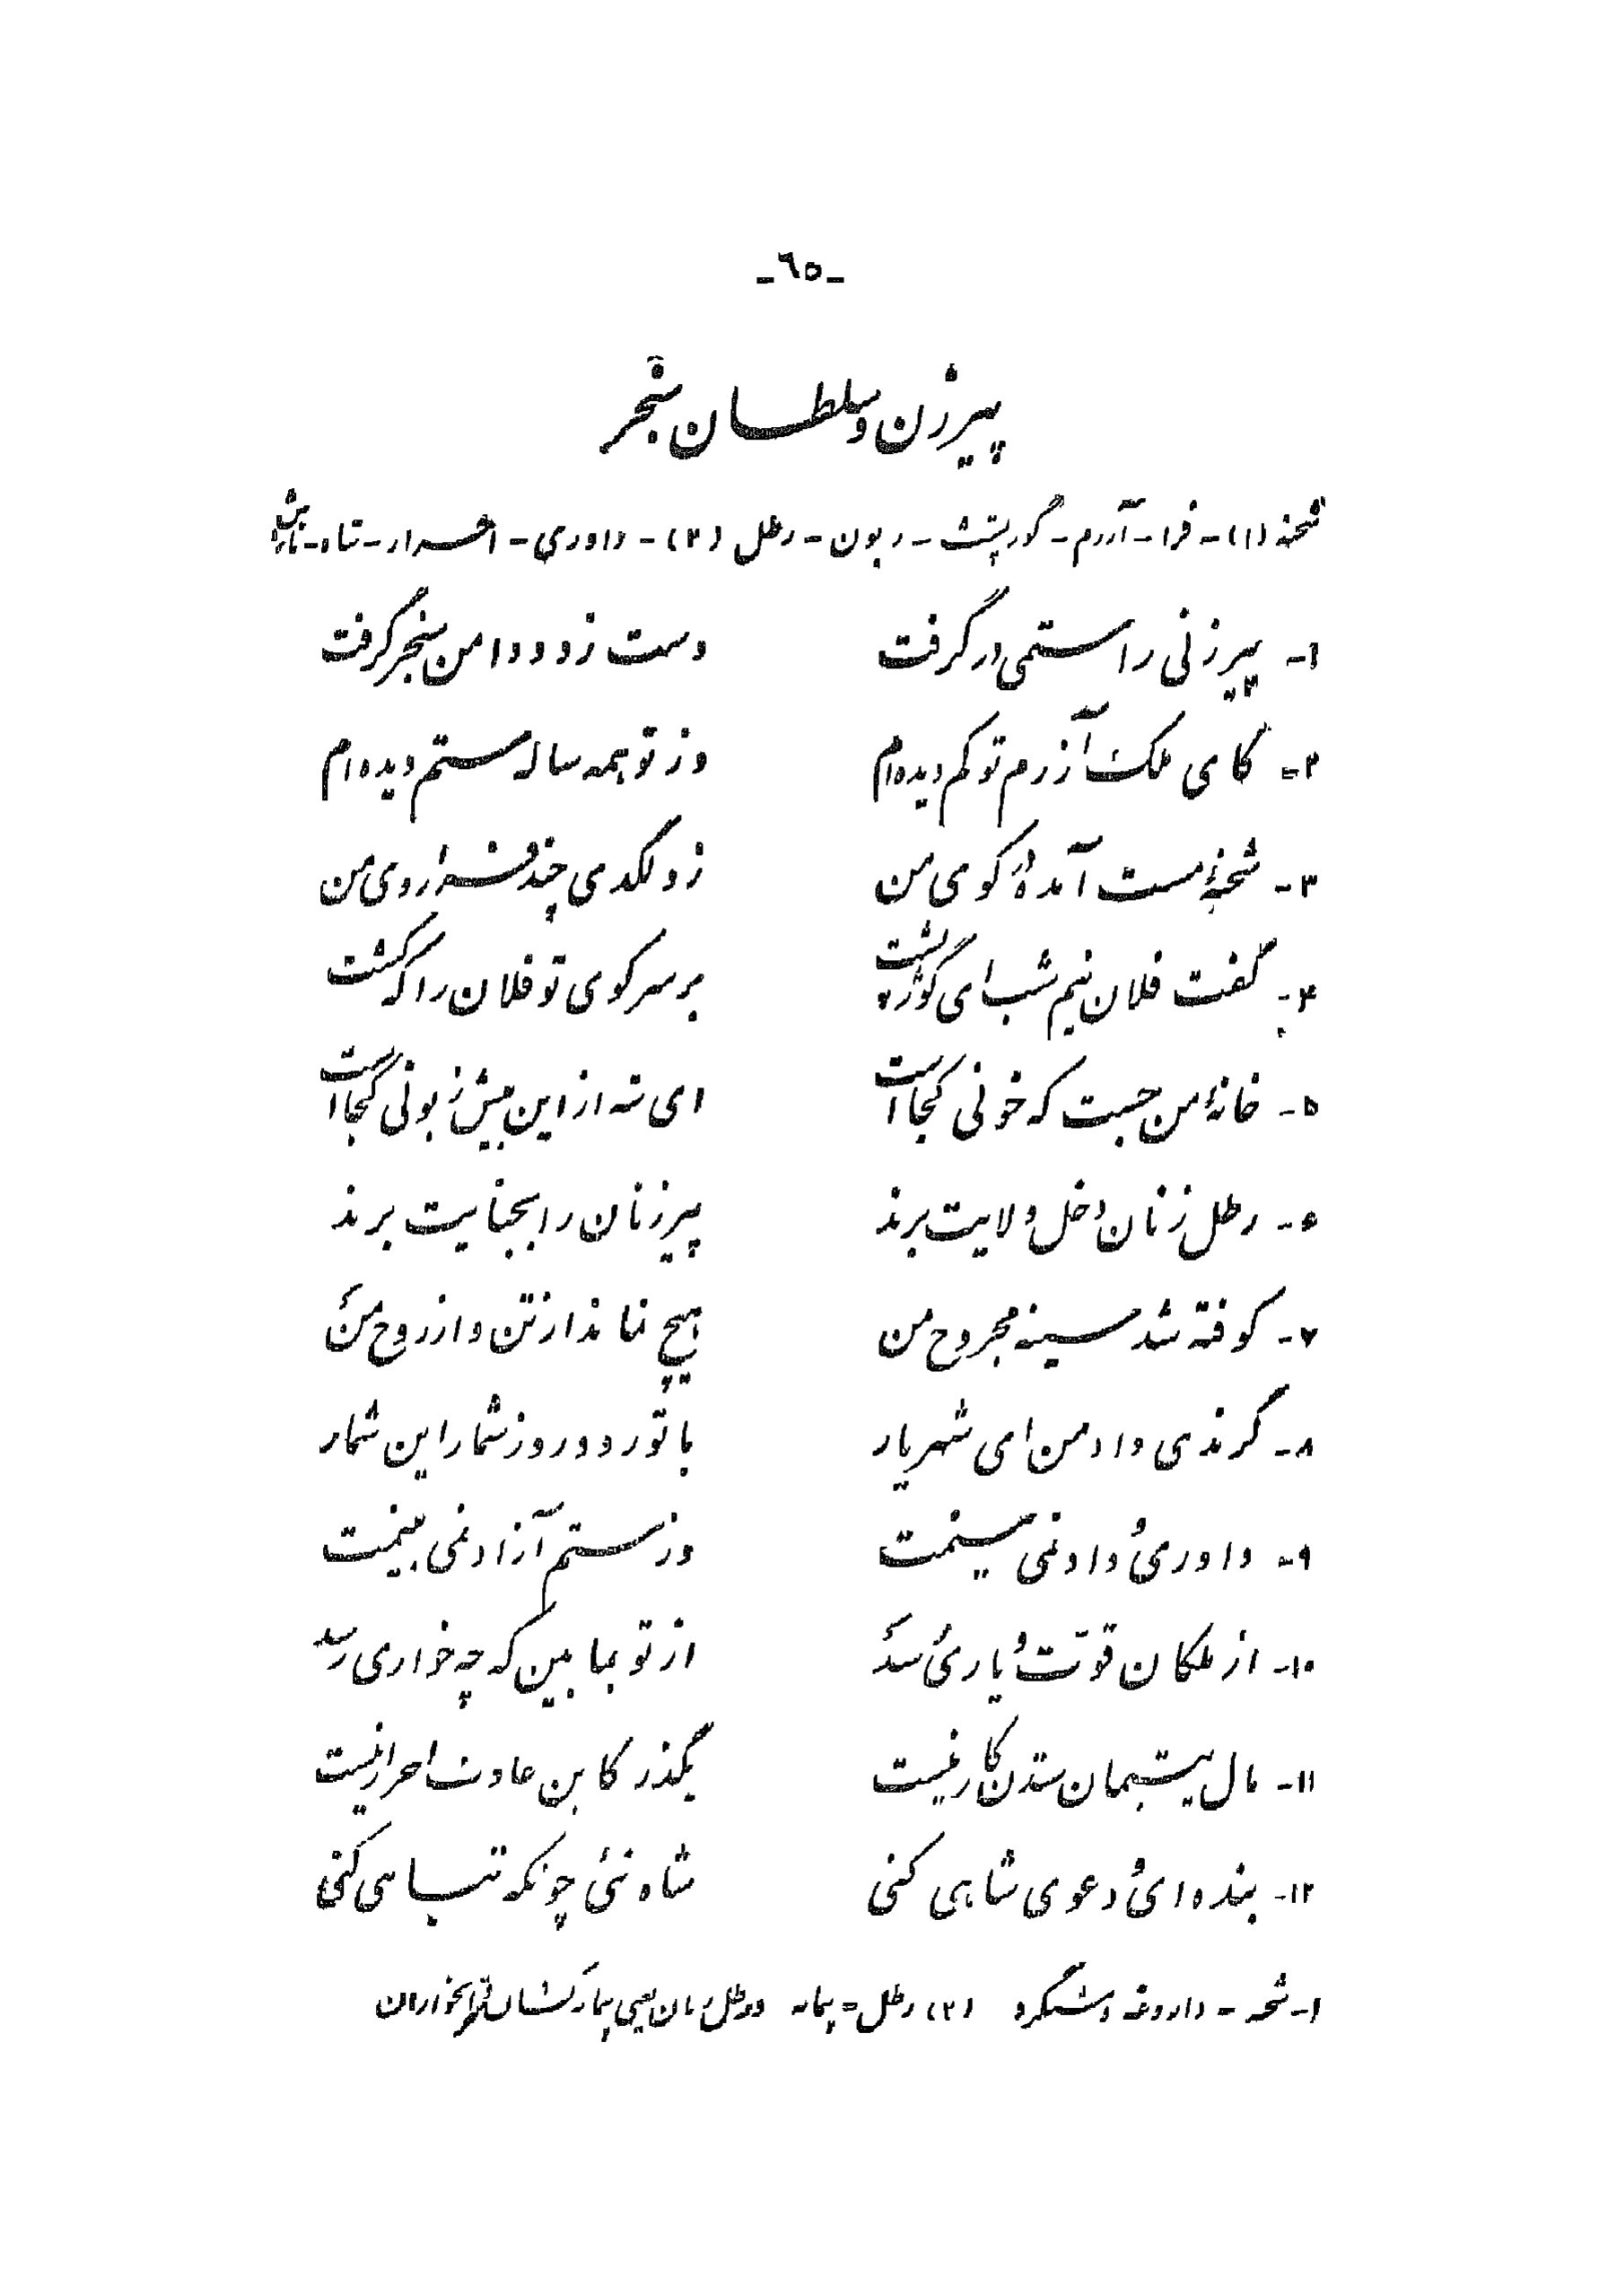 -٦٥-
پیرزن و سلطان سنجر
شحنه (۱) - فرا - آزرم - گوژپشت - زبون - رطل (۲) - داوری - احرار - تباه -
۱- پیرزنی را ستمی در گرفت دست زد و دامن سنجر گرفت
۲- کای ملک آزرم تو کم دیده‌ام وز تو همه ساله ستم دیده‌ام
۳- شحنهٔ مست آمده در کوی من زد لگدی چند فرا روی من
۴- گفت فلان نیم شب ای گوژپشت بر سر کوی تو فلان را که کشت
۵- خانهٔ من جست که خونی کجا است ای شه از این بیش زبونی کجا است
۶- رطل زنان دخل ولایت برند پیرزنان را بجنایت برند
۷- کوفته شد سینه مجروح من هیچ نماند از تن و از روح من
۸- گر ندی داد من ای شهریار با تو رود روز شمار این شمار
۹- داوری و داد نمی‌بینمت وز ستم آزاد نمی‌بینمت
۱۰- از ملکان قوّت و یاری رسد از تو بما بین که چه خواری رسد
۱۱- مال یتیمان ستدن کار نیست بگذر کاین عادت احرار نیست
۱۲- بنده‌ای و دعوی شاهی کنی شاه نئی چونکه تباهی کنی
۱- شحنه - داروغه و شبگرد (۲) رطل = پیمانه و رطل زنان یعنی پیمانه کشان و شرابخواران